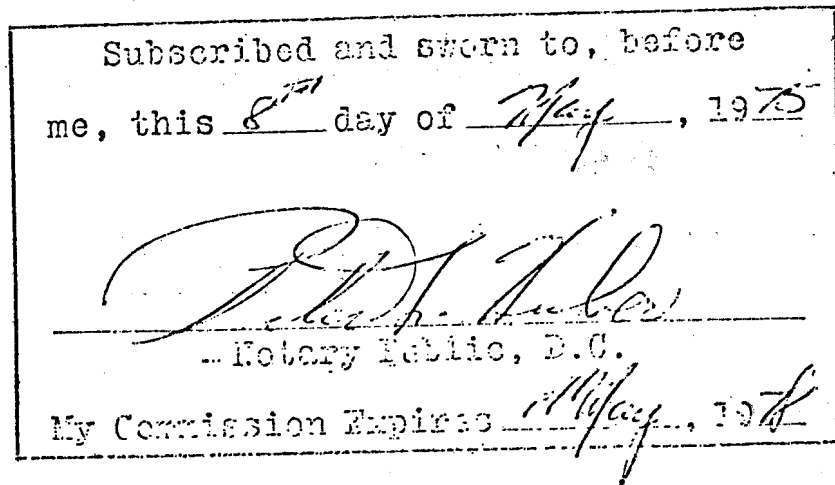 Subscribed and sworn to, before
me, this 8th day of May, 1975
Notary Public, D.C.
My Commission Expires May, 19